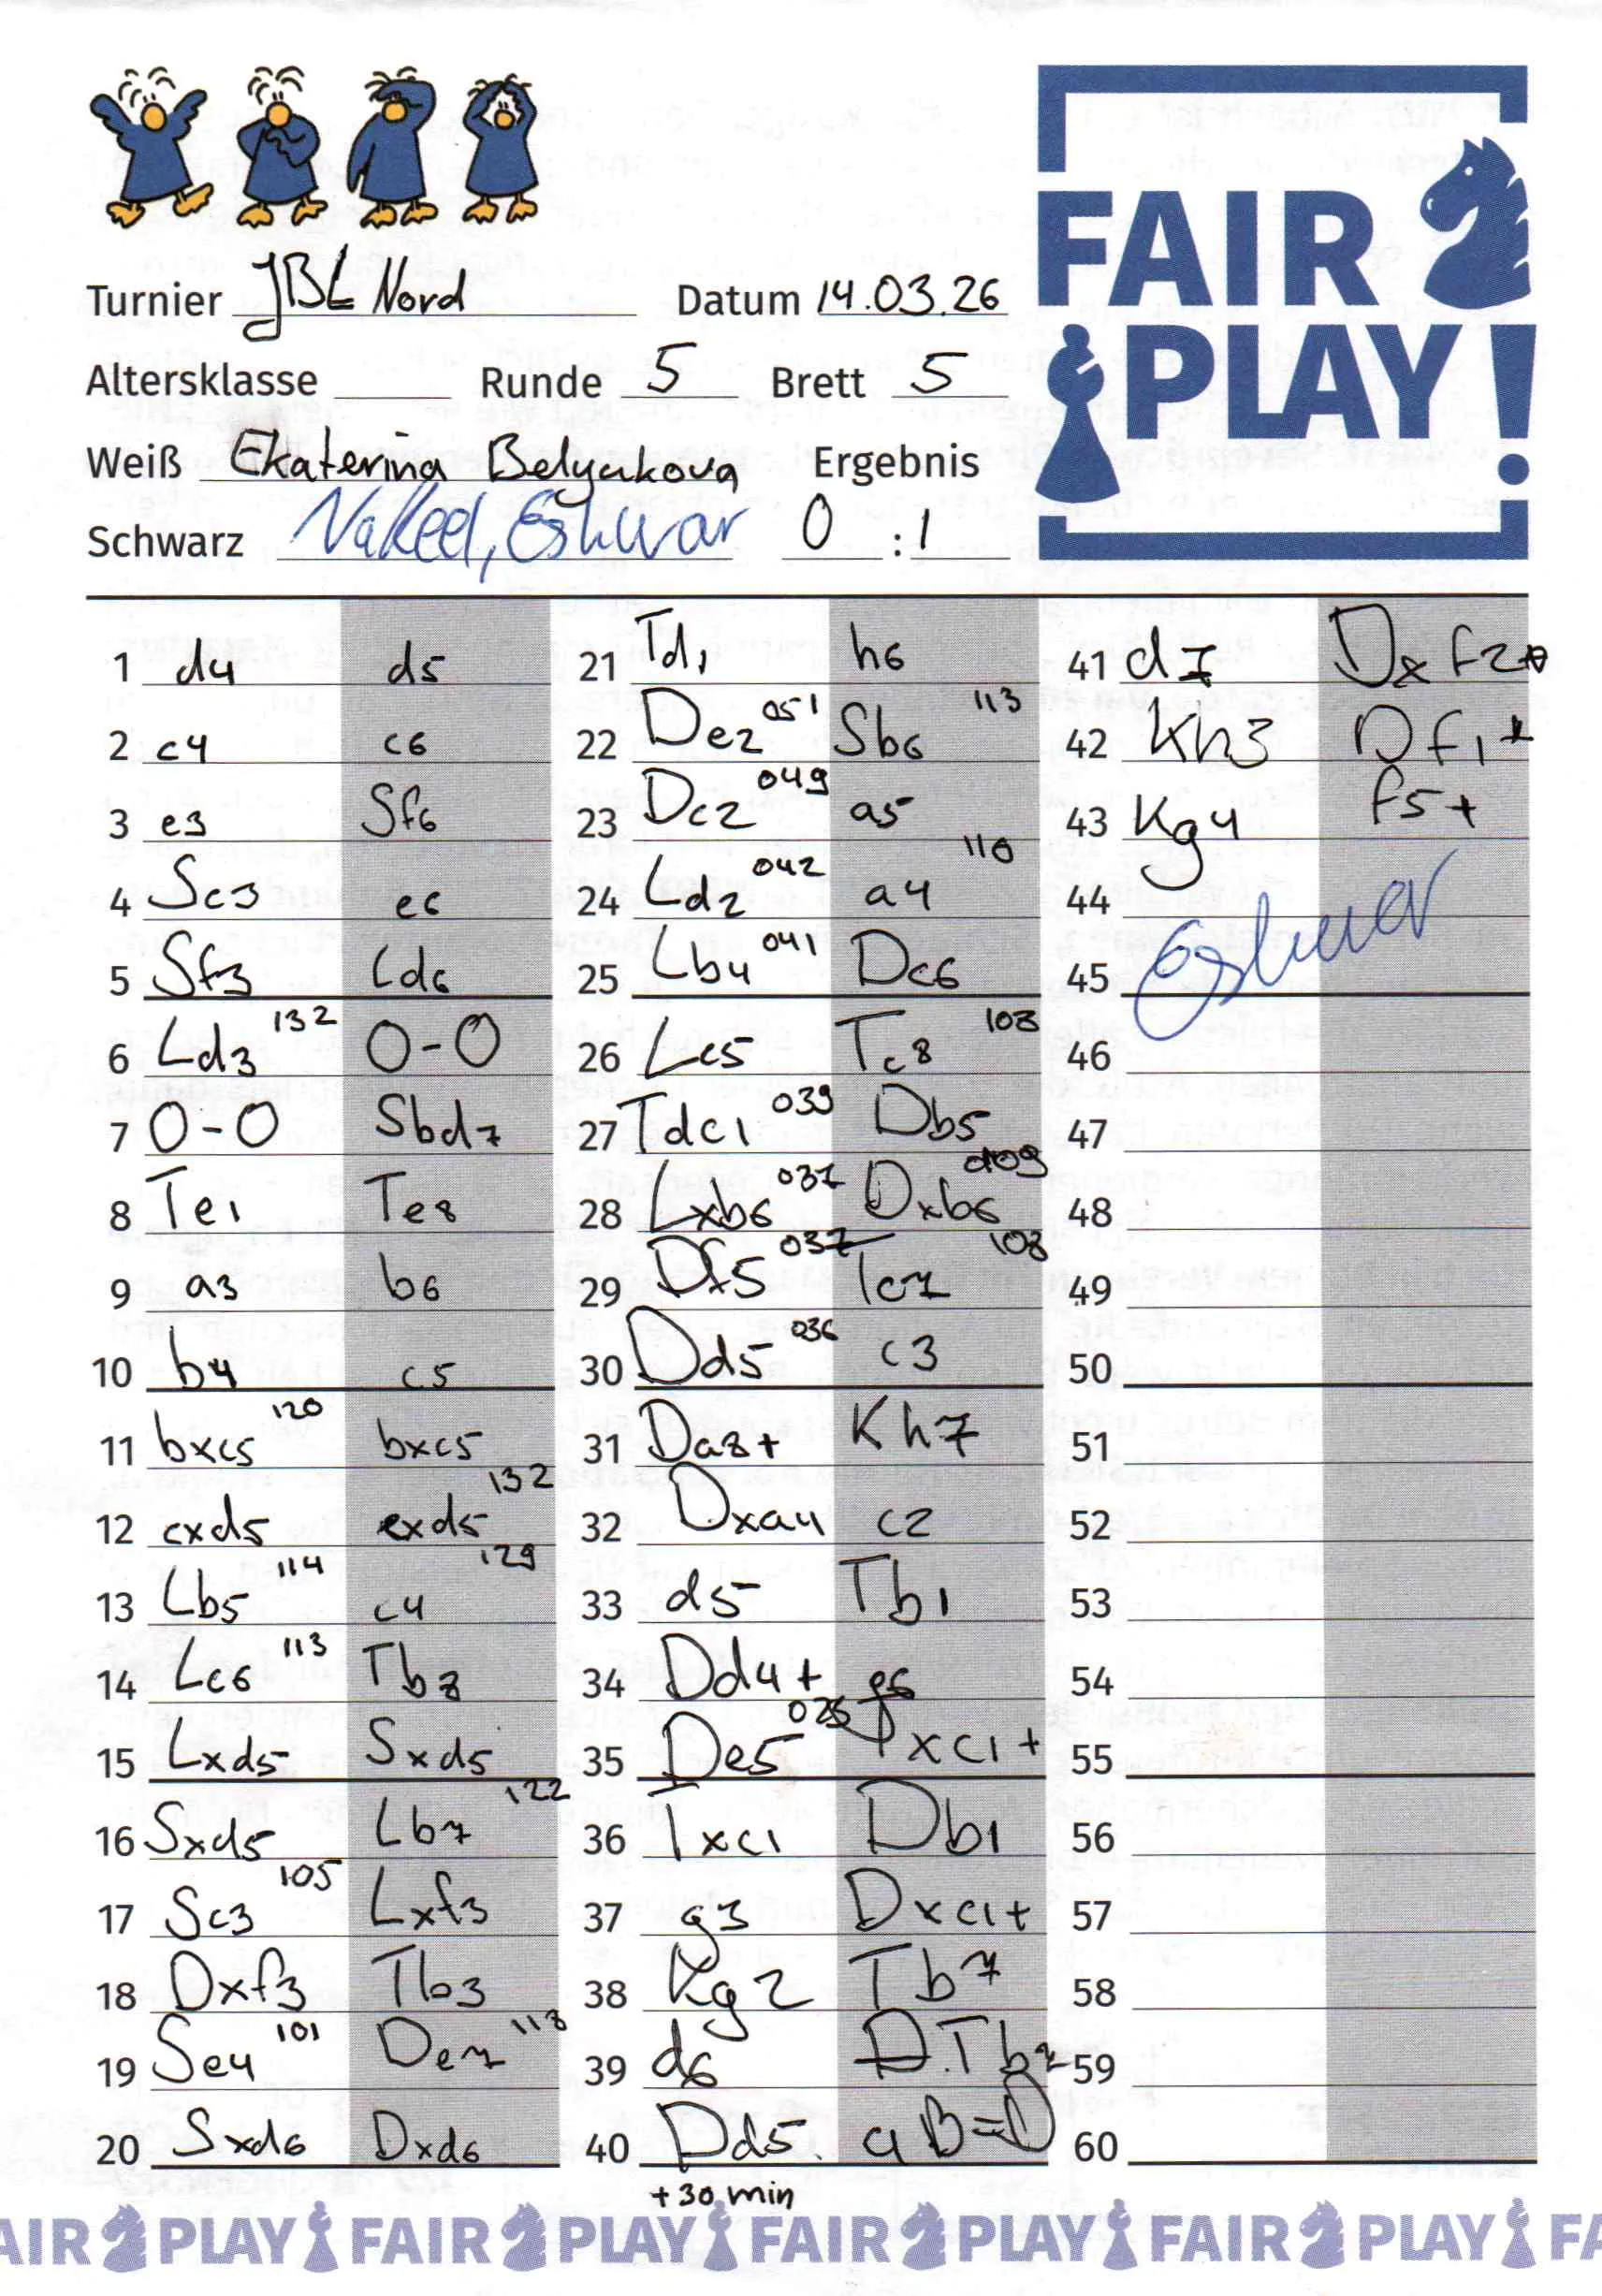 FAIR
PLAY!
Turnier JBL Nord Datum 14.03.26
Altersklasse Runde 5 Brett 5
Weiß Ekaterina Belyakova Ergebnis
Schwarz Nakeel, Eshwar 0 : 1
1 d4 d5
2 c4 c6
3 e3 Sf6
4 Sc3 e6
5 Sf3 Ld6
6 Ld3 132 0-0
7 0-0 Sbd7
8 Te1 Te8
9 a3 b6
10 b4 c5
11 bxc5 120 bxc5
12 cxd5 exd5 132
13 Lb5 114 c4 129
14 Lc6 113 Tb8
15 Lxd5 Sxd5
16 Sxd5 Lb7 122
17 Sc3 105 Lxf3
18 Dxf3 Tb3
19 Se4 101 De7 118
20 Sxd6 Dxd6
21 Td1 h6
22 De2 051 Sb6 113
23 Dc2 049 a5
24 Ld2 042 a4 110
25 Lb4 041 Dc6
26 Lc5 Tc8 108
27 Tdc1 039 Db5
28 Lxb6 037 Dxb6 109
29 Df5 037 Tc7 108
30 Dd5 036 c3
31 Da8+ Kh7
32 Dxa4 c2
33 d5 Tb1
34 Dd4+ g6
35 De5 025 Txc1+
36 Txc1 Db1
37 g3 Dxc1+
38 Kg2 Tb7
39 d6 Tb2
40 Dd5 B=D
+30 min
41 d7 Dxf2+
42 Kh3 Df1+
43 Kg4 f5+
44
45 Eshwar
46
47
48
49
50
51
52
53
54
55
56
57
58
59
60
AIR PLAY FAIR PLAY FAIR PLAY FAIR PLAY FA